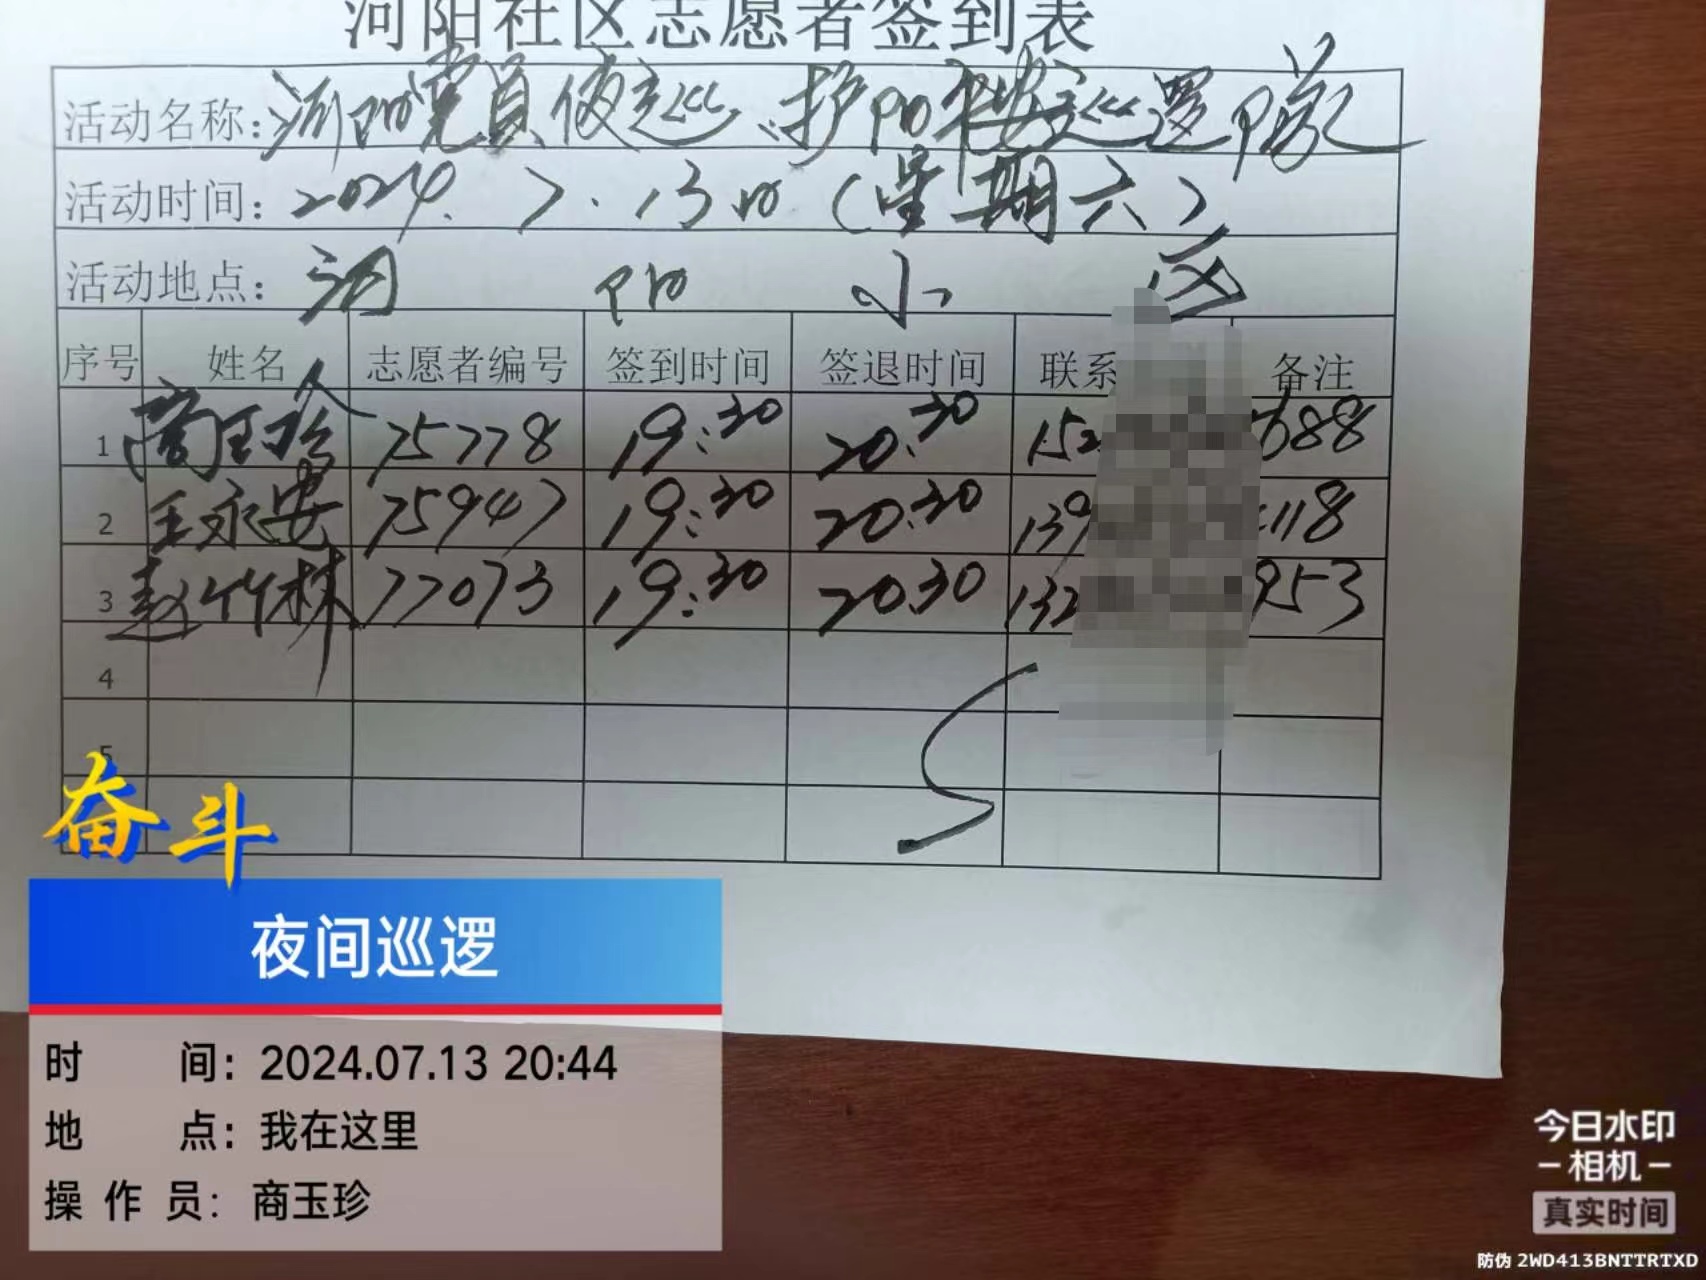 河阳社区志愿者签到表
活动名称：河阳党员夜巡、护阳平安巡逻队
活动时间：2024.7.13日（星期六）
活动地点：河阳小区
序号 姓名 志愿者编号 签到时间 签退时间 联系 备注
1 商玉珍 75778 19:30 20:30 152 688
2 王永安 75947 19:30 20:30 139 118
3 赵竹林 77073 19:30 20:30 132 953
4
5
奋斗
夜间巡逻
时 间：2024.07.13 20:44
地 点：我在这里
操作员：商玉珍
今日水印
-相机-
真实时间
防伪 2WD413BNTTRTXD